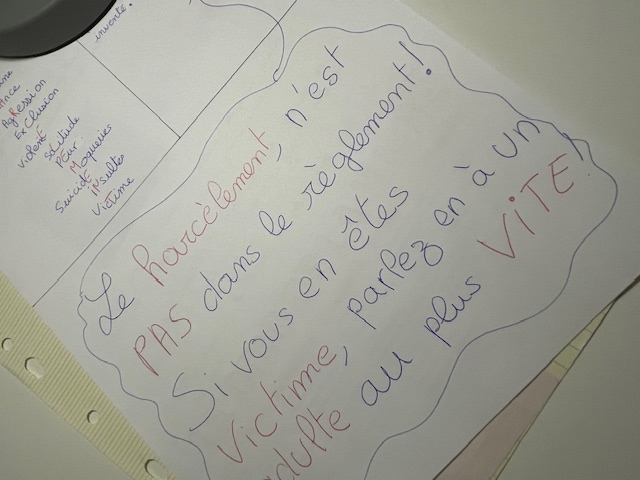 invente.
AgRession
ExClusion
violenE
SoLitude
PEur
Moqueries
SuicidE
INsultes
VicTime
Le harcèlement, n'est
PAS dans le règlement!
Si vous en êtes
victime, parlez en à un
adulte au plus ViTE